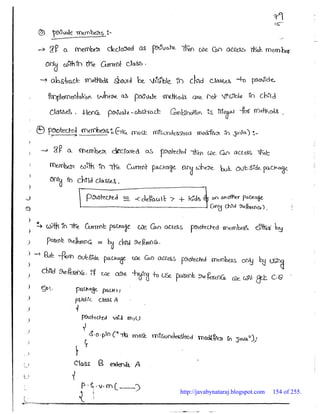 ③ private members :-
→ If a member declared as private then we can access that member
only within the current class.
→ abstract methods should be visible in child classes to provide
implementation where as private methods are not visible in child
classes. Hence private-abstract combination is illegal for methods.
④ protected members : (The most misunderstood modifier in java) :-
→ If a member declared as protected then we can access that
member with in the current package any where but outside package
only in child classes.
protected = <default> + kids of an another package
(only child reference).
→ with in the current package we can access protected members either by
parent reference or by child reference.
→ But from outside package we can access protected members only by using
child reference. if we are trying to use parent reference we will get C.E
Ex:. package pack1;
public class A
{
protected void m1()
{
s.o.pln("The most misunderstood modifier in java");
}
}
class B extends A
{
p.s.v.m(——)
{
http://javabynataraj.blogspot.com 154 of 255.